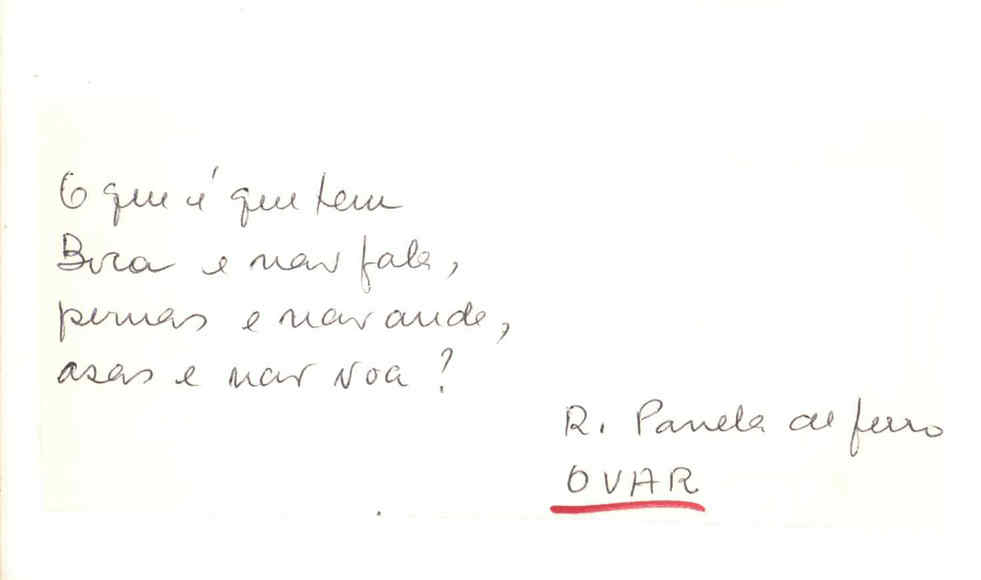 O que é que tem
Boca e não fala,
pernas e não anda,
asas e não voa?
R. Panela de ferro
OVAR